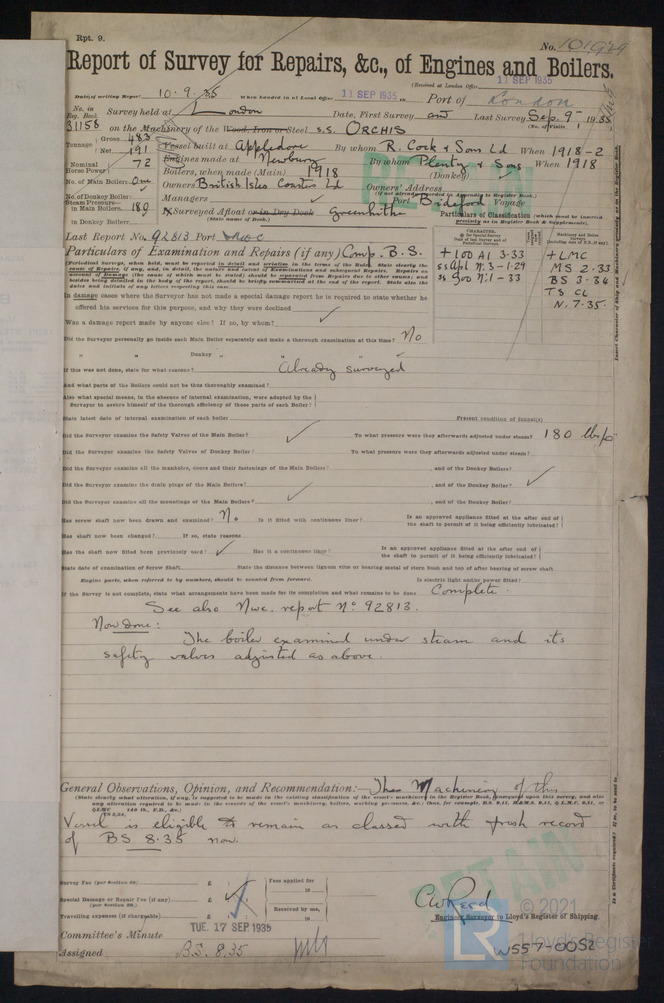 Rpt. 9.
No. 101929
Report of Survey for Repairs, &c., of Engines and Boilers.
(Received at London Office 11 SEP 1935
Date of writing Report 10.9.35 When handed in at Local Office 11 SEP 1935 Port of London
No. in Reg. Book 31158 Survey held at London Date, First Survey and Last Survey Sep. 9 1935
(No. of Visits 1
on the Machinery of the Wood, Iron or Steel s.s. ORCHIS
Tonnage Gross 483 Net 191 Vessel built at Appledore By whom R. Cock & Sons Ld When 1918-2
Nominal Horse Power 72 Engines made at Newbury By whom Plenty & Sons When 1918
No. of Main Boilers One Boilers, when made (Main) 1918 (Donkey)
No. of Donkey Boilers Owners British Isles Coasters Ld Owners' Address
(If not already recorded in Appendix to Register Book.)
Steam Pressure in Main Boilers 180 Managers Port Bideford Voyage
in Donkey Boiler Surveyed Afloat or in Dry Dock Greenhithe
(State name of Dock.)
Particulars of Classification (which must be inserted precisely as in Register Book & Supplements).
Last Report No. 92813 Port Nwc
Particulars of Examination and Repairs (if any) Comp. B.S.
+ 100 A1 3.33
ss Apl No. 3 - 1.29
ss Goo No. 1 - 33
+ LMC
MS 2.33
BS 3.34
TS CL
N. 7.35.
In damage cases where the Surveyor has not made a special damage report he is required to state whether he
offered his services for this purpose, and why they were declined
Was a damage report made by anyone else? If so, by whom?
Did the Surveyor personally go inside each Main Boiler separately and make a thorough examination at this time? No
" " Donkey " " "
If this was not done, state for what reasons? Already surveyed
And what parts of the Boilers could not be thus thoroughly examined?
Also what special means, in the absence of internal examination, were adopted by the
Surveyor to assure himself of the thorough efficiency of those parts of each Boiler?
State latest date of internal examination of each boiler Present condition of funnel(s)
Did the Surveyor examine the Safety Valves of the Main Boiler? To what pressure were they afterwards adjusted under steam? 180 lbs/□"
Did the Surveyor examine the Safety Valves of Donkey Boiler? To what pressure were they afterwards adjusted under steam?
Did the Surveyor examine all the manholes, doors and their fastenings of the Main Boilers? , and of the Donkey Boiler?
Did the Surveyor examine the drain plugs of the Main Boilers? , and of the Donkey Boiler?
Did the Surveyor examine all the mountings of the Main Boilers? , and of the Donkey Boiler?
Has screw shaft now been drawn and examined? No Is it fitted with continuous liner? Is an approved appliance fitted at the after end of the shaft to permit of it being efficiently lubricated?
Has shaft now been changed? If so, state reasons
Has the shaft now fitted been previously used? Has it a continuous liner? Is an approved appliance fitted at the after end of the shaft to permit of it being efficiently lubricated?
State date of examination of Screw Shaft State the distance between lignum vitæ or bearing metal of stern bush and top of after bearing of screw shaft
Engine parts, when referred to by numbers, should be counted from forward. Is electric light and/or power fitted?
If the Survey is not complete, state what arrangements have been made for its completion and what remains to be done Complete.
See also Nwc. report No. 92813.
Now done:
The boiler examined under steam and its
safety valves adjusted as above.
General Observations, Opinion, and Recommendation:— The Machinery of this
Vessel is eligible to remain as classed with fresh record
of BS 8.35 now.
Survey Fee (per Section 29) £
Fees applied for
Special Damage or Repair Fee (if any) (per Section 29) £
Travelling expenses (if chargeable) £
Received by me,
Engineer Surveyor to Lloyd's Register of Shipping.
TUE. 17 SEP 1935
Committee's Minute
Assigned B.S. 8.35
RETAIN
RETAIN
© 2021
LR Lloyd's Register
Foundation
W557-0052